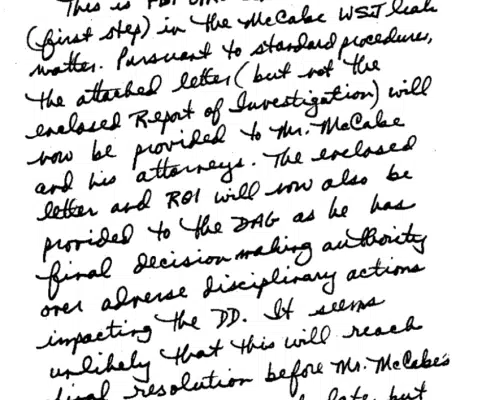 This is FBI
(first step) in the McCabe WSJ leak
matter. Pursuant to standard procedures,
the attached letter (but not the
enclosed Report of Investigation) will
now be provided to Mr. McCabe
and his attorneys. The enclosed
letter and ROI will now also be
provided to the DAG as he has
final decision making authority
over adverse disciplinary actions
impacting the DD. It seems
unlikely that this will reach
final resolution before Mr. McCabe's
late, but